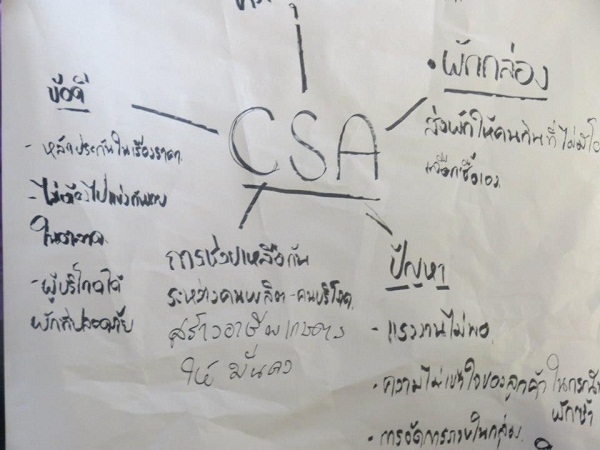 CSA
ข้อดี
- หลักประกันในเรื่องราคา
- ไม่ต้องไปแข่งกันขาย
ในตลาด
- ผู้บริโภคได้
ผักที่ปลอดภัย
การช่วยเหลือกัน
ระหว่างคนผลิต-คนบริโภค
สร้างอาชีพเกษตร
ให้ มั่นคง
• ผักกล่อง
ส่งผักให้คนกินที่ไม่มีโ
เลือกซื้อเอง
ปัญหา
- แรงงานไม่พอ
• ความไม่เข้าใจของลูกค้า ในกรณี
ผักซ้ำ
• การจัดการภายในกล่อง